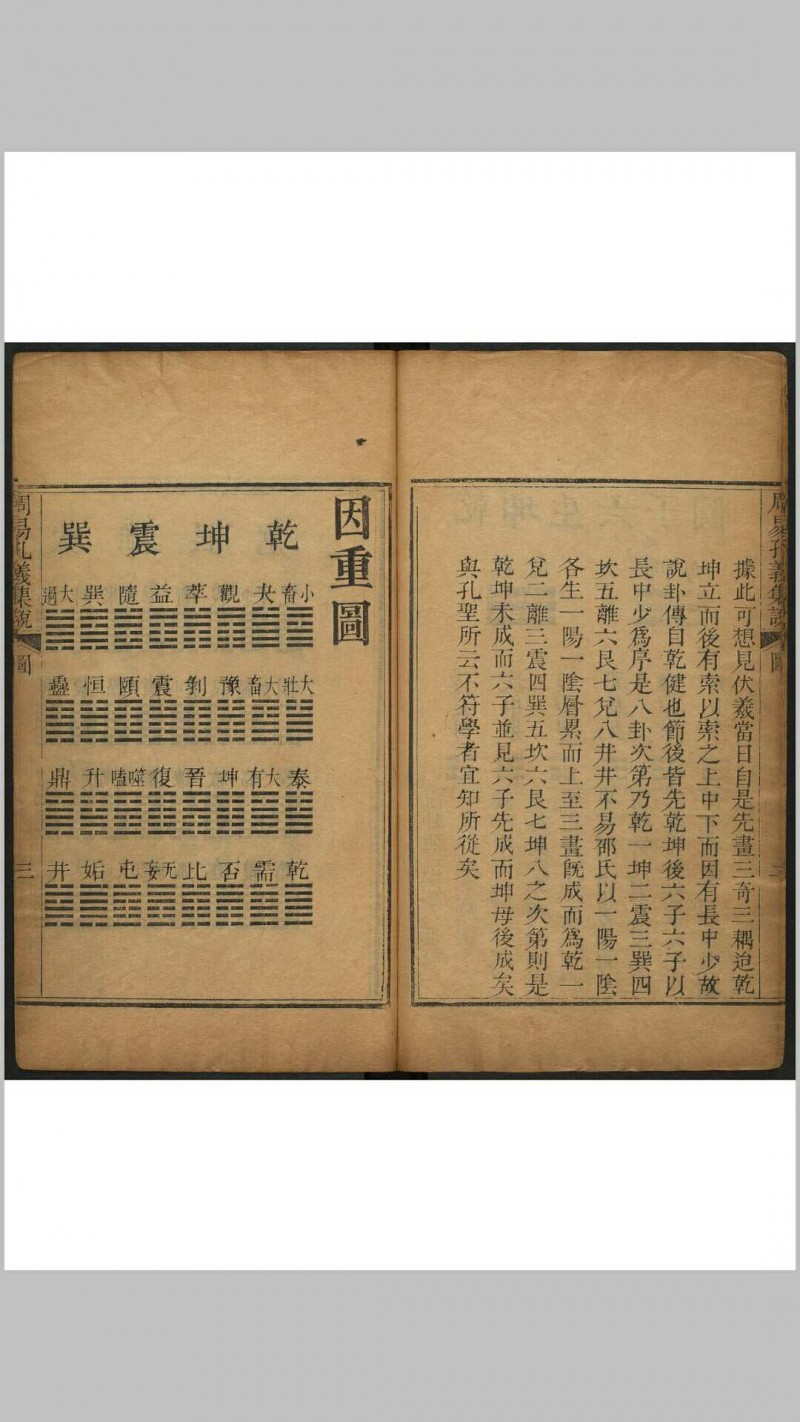 周易孔義集說
圖
三
據此可想見伏羲當日自是先畫三奇三耦迨乾
坤立而後有索以索之上中下而因有長中少故
說卦傳自乾健也節後皆先乾坤後六子六子以
長中少爲序是八卦次第乃乾一坤二震三巽四
坎五離六艮七兌八井井不易邵氏以一陽一陰
各生一陽一陰層累而上至三畫旣成而爲乾一
兌二離三震四巽五坎六艮七坤八之次第則是
乾坤未成而六子並見六子先成而坤母後成矣
與孔聖所云不符學者宜知所從矣
因重圖
乾 坤 震 巽
小畜 夬 觀 萃 益 隨 巽 大過
大壯 大畜 豫 剝 震 頤 恒 蠱
泰 大有 坤 晉 復 噬嗑 升 鼎
乾 需 否 比 无妄 屯 姤 井
周易孔義集說
圖
三